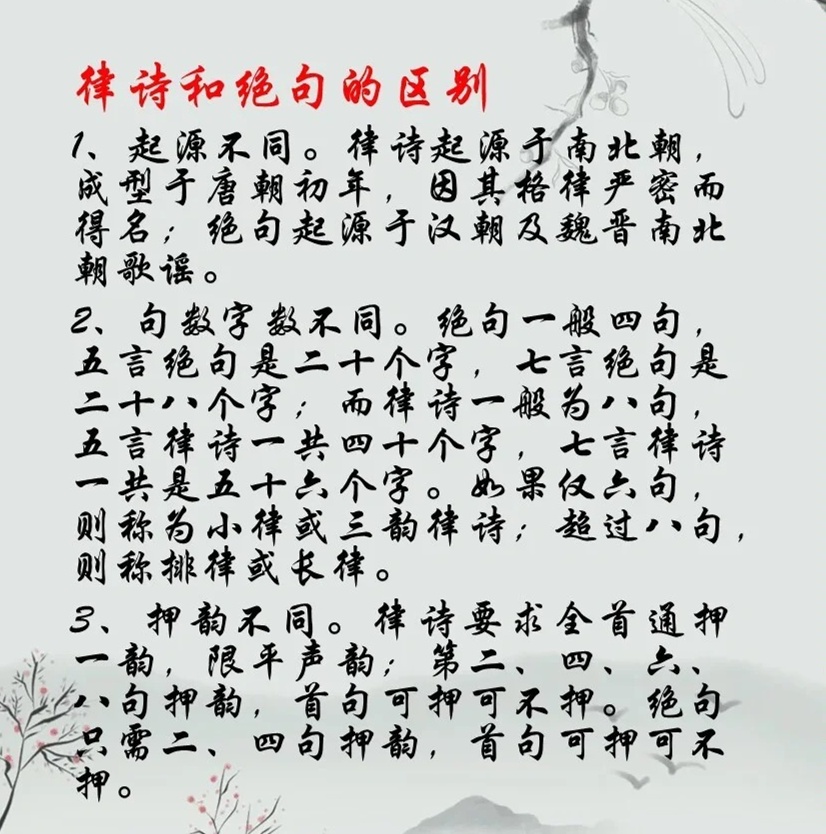 律诗和绝句的区别
1、起源不同。律诗起源于南北朝，
成型于唐朝初年，因其格律严密而
得名；绝句起源于汉朝及魏晋南北
朝歌谣。
2、句数字数不同。绝句一般四句，
五言绝句是二十个字，七言绝句是
二十八个字；而律诗一般为八句，
五言律诗一共四十个字，七言律诗
一共是五十六个字。如果仅六句，
则称为小律或三韵律诗；超过八句，
则称排律或长律。
3、押韵不同。律诗要求全首通押
一韵，限平声韵；第二、四、六、
八句押韵，首句可押可不押。绝句
只需二、四句押韵，首句可押可不
押。